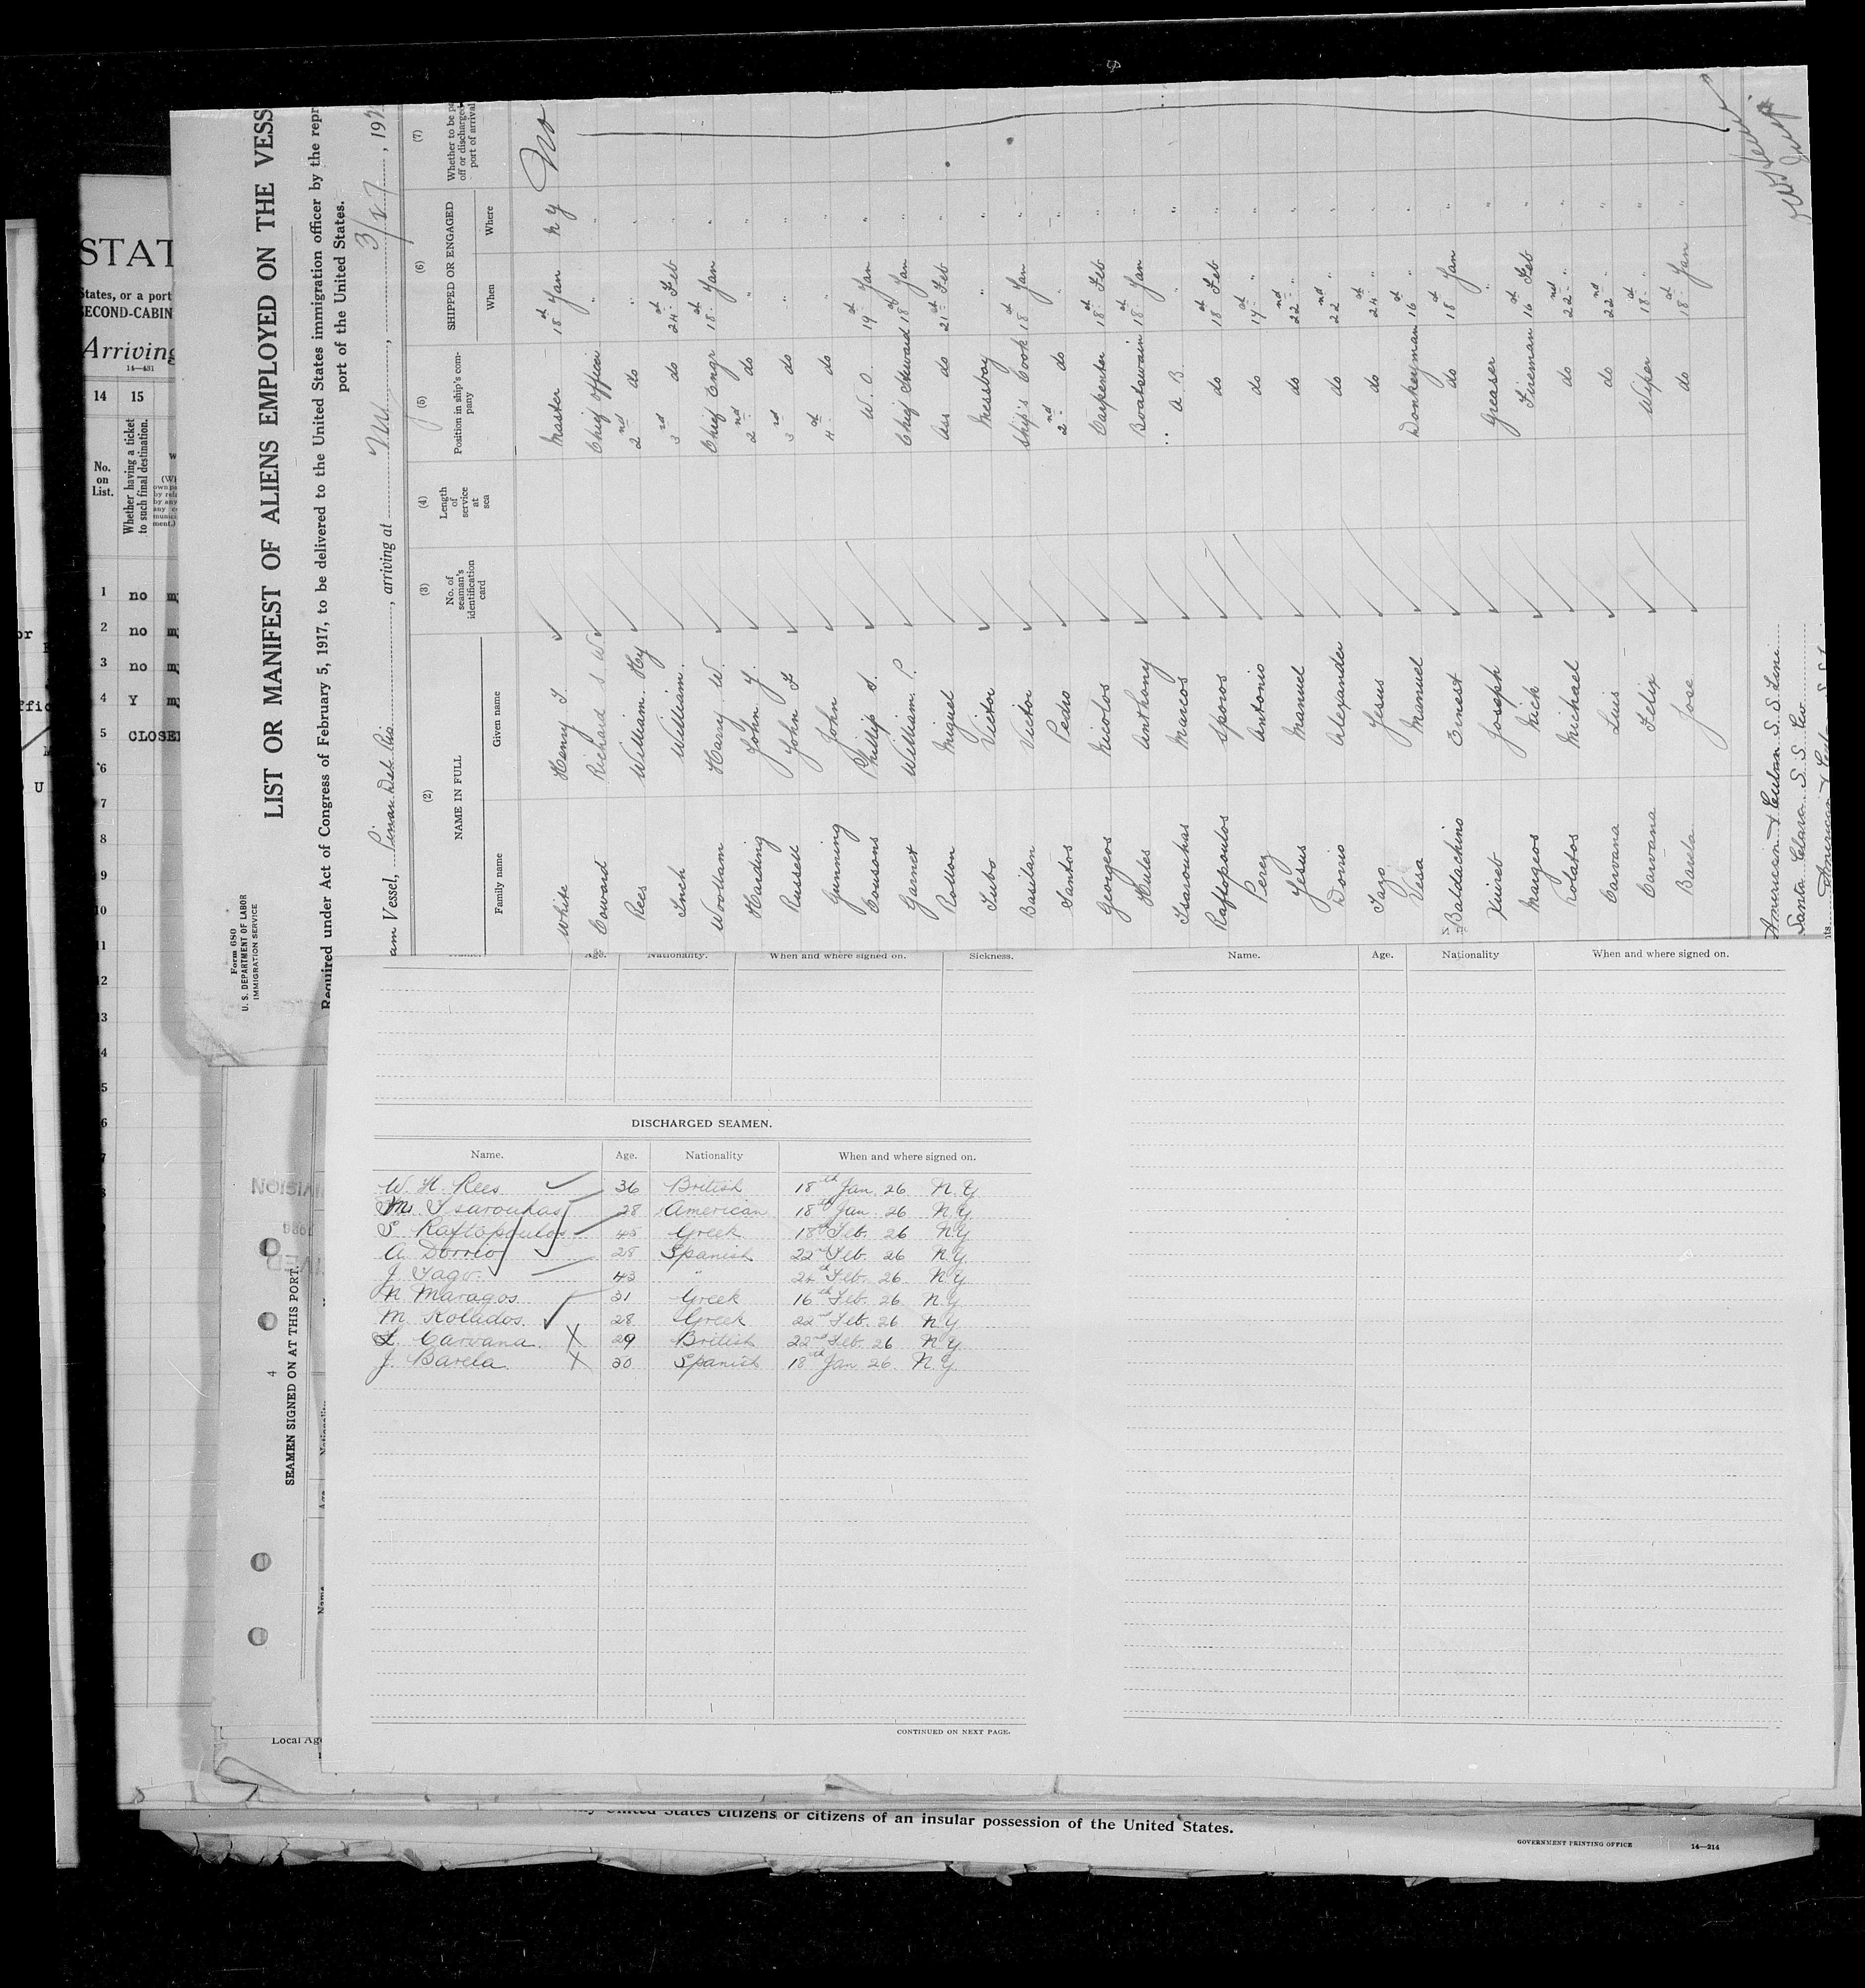 STAT
States, or a port
SECOND-CABIN
Arriving
14—431
14 15
No. on List.
Whether having a ticket to such final destination.
1 no m
2 no m
3 no m
4 Y m
5 CLOSE
6
7
8
9
10
11
12
Form 680
U. S. DEPARTMENT OF LABOR
IMMIGRATION SERVICE
LIST OR MANIFEST OF ALIENS EMPLOYED ON THE VESS
Required under Act of Congress of February 5, 1917, to be delivered to the United States immigration officer by the repr
port of the United States.
am Vessel, Pinar Del Rio, arriving at
(2) (3) (4) (5) (6) (7)
NAME IN FULL
Family name Given name
No. of seaman's identification card
Length of service at sea
Position in ship's company
SHIPPED OR ENGAGED
When Where
Whether to be
off or discharged
port of arrival
White Henry T. Master 18th Jan N Y No
Coward Richard S W. Chief Officer " "
Rees William Hy 2nd do " "
Inch William. 3rd do 24th Feb "
Woollam Harry W. Chief Engr 18th Jan "
Harding John Y. 2nd do " "
Russell John F 3rd do " "
Gunning John 4th do " "
Cousons Phillip S. W. O. 19th Jan "
Garnet William P. Chief Steward 18th Jan "
Rollon Miguel Ass do 21st Feb "
Subo Victor Messboy " "
Basilan Victor Ship's Cook 18th Jan "
Santos Pedro 2nd do " "
Georgeos Nicolos Carpenter 18th Feb "
Hules Anthany Boatswain 18th Jan "
Tsarouhas Marcos A. B. " "
Raftopoulos Sporos do 18th Feb "
Perez Antonio do 17th " "
Jesus Manuel do 22nd " "
Dorrio Alexander do 22nd " "
Tazo Jesus do 24th " "
Vesa Manuel Donkeyman 16th " "
Baldachino Ernest do 18th Jan "
Xuireb Joseph Greaser " "
Margeos Nick Fireman 16th Feb "
Kolatos Michael do 22nd " "
Carvana Luis do 22nd " "
Carvana Felix Wiper 18th " "
Barela Jose do 18th Jan "
American & Cuban S. S. Line.
Santa Clara S. S. Co.
Name. Age. Nationality. When and where signed on. Sickness.
Name. Age. Nationality When and where signed on.
DISCHARGED SEAMEN.
Name. Age. Nationality When and where signed on.
W. H. Rees 36 British 18th Jan 26 N.Y
M. Tsaroukas 28 American 18th Jan 26 N.Y
S Raftopoulos 45 Greek 18th Feb. 26 N.Y
A. Dorrio 28 Spanish 22nd Feb. 26 N.Y.
J. Tago. 43 " 24th Feb. 26 N.Y
N Maragos 31 Greek 16th Feb. 26 N.Y
M. Kollados. 28 Greek 22nd Feb. 26 N.Y
L. Carvana. X 29 British 22nd Feb. 26 N Y
J. Barela X 50 Spanish 18th Jan 26. N.Y.
CONTINUED ON NEXT PAGE.
SEAMEN SIGNED ON AT THIS PORT.
4
Name Age Nationality
Local Ag
United States citizens or citizens of an insular possession of the United States.
GOVERNMENT PRINTING OFFICE 14—214